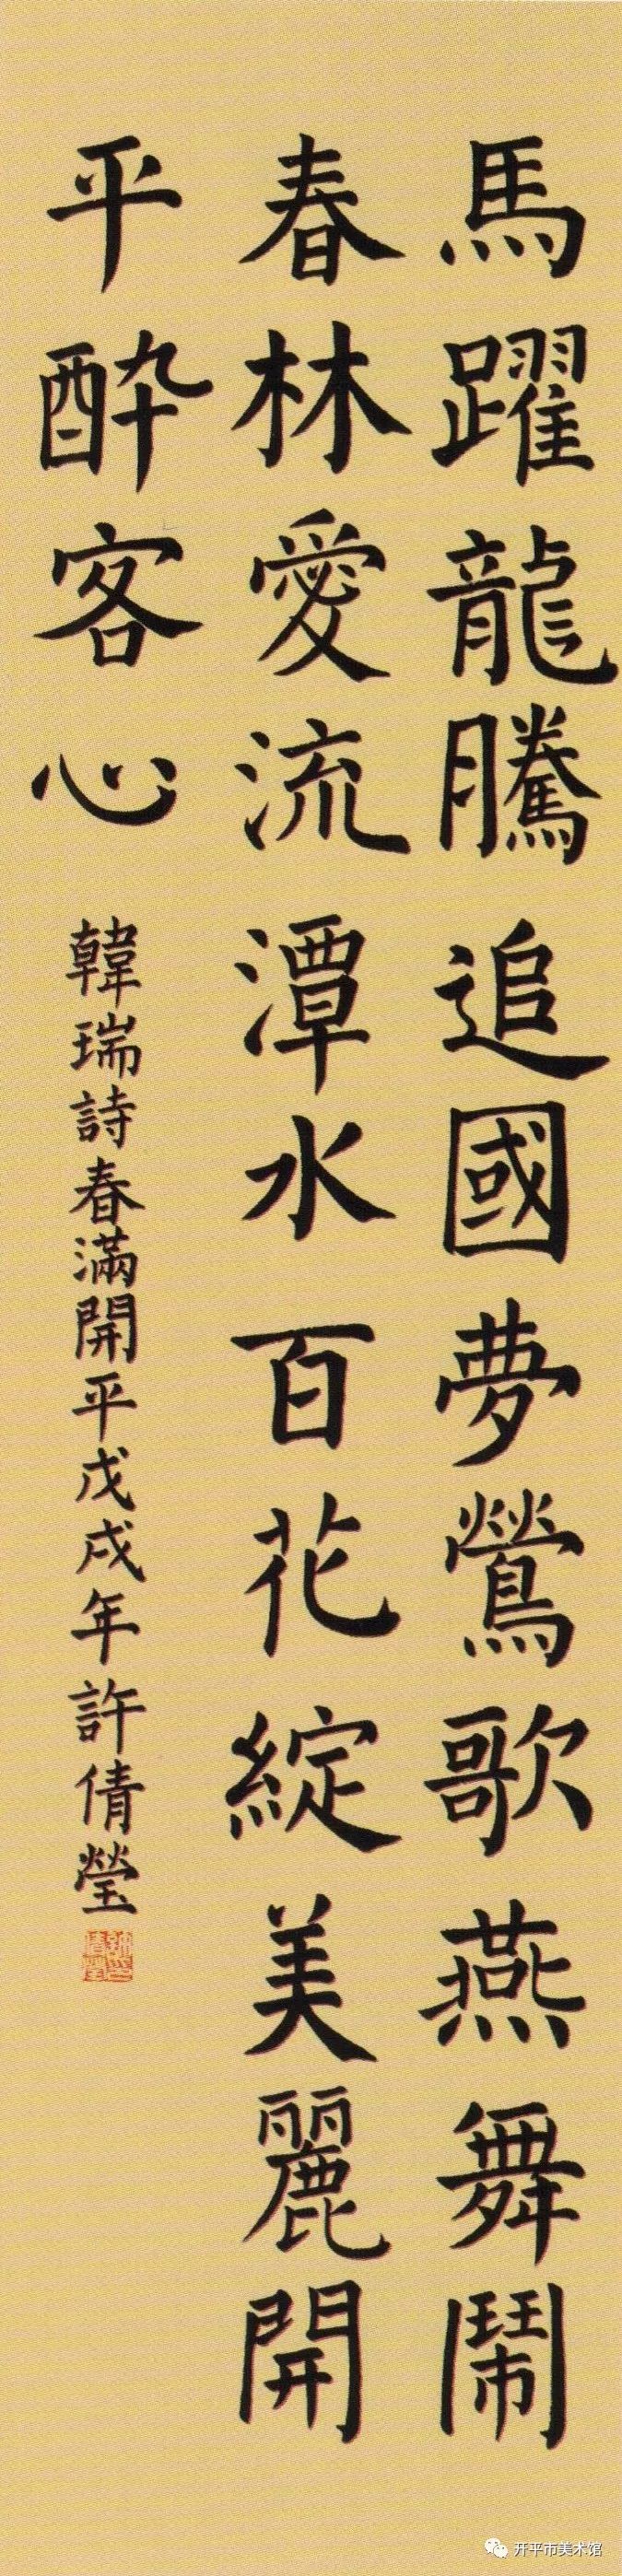 馬躍龍騰追國夢鶯歌燕舞鬧
春林愛流潭水百花綻美麗開
平醉客心
韓瑞詩春滿開平戊戌年許倩瑩
开平市美术馆